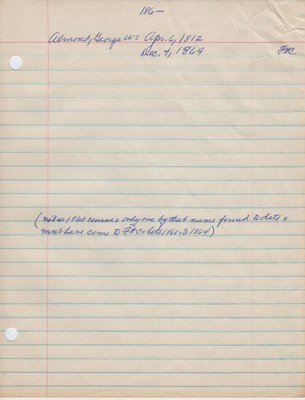 186-
Almond, George W= Apr. 6, 1812
Dec. 4, 1864 FNC
(not in 1860 census = only one by that name found to date =
must have come to Ft Co bet. 1860 & 1864)